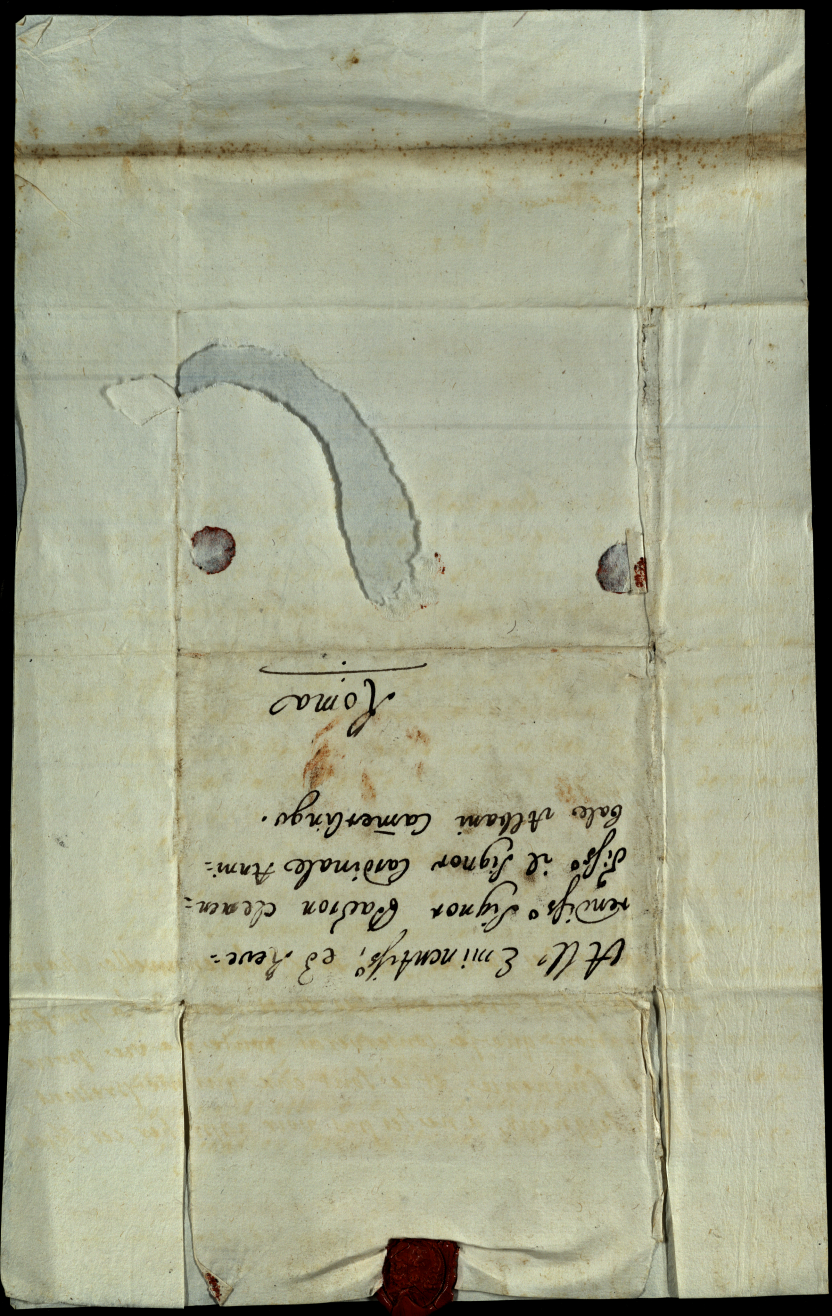 All' Eminentisso, ed Reve=
rendisso Signor Padron Clemen=
tisso il Signor Cardinale Anni=
bale Albani Camerlingo.
Roma